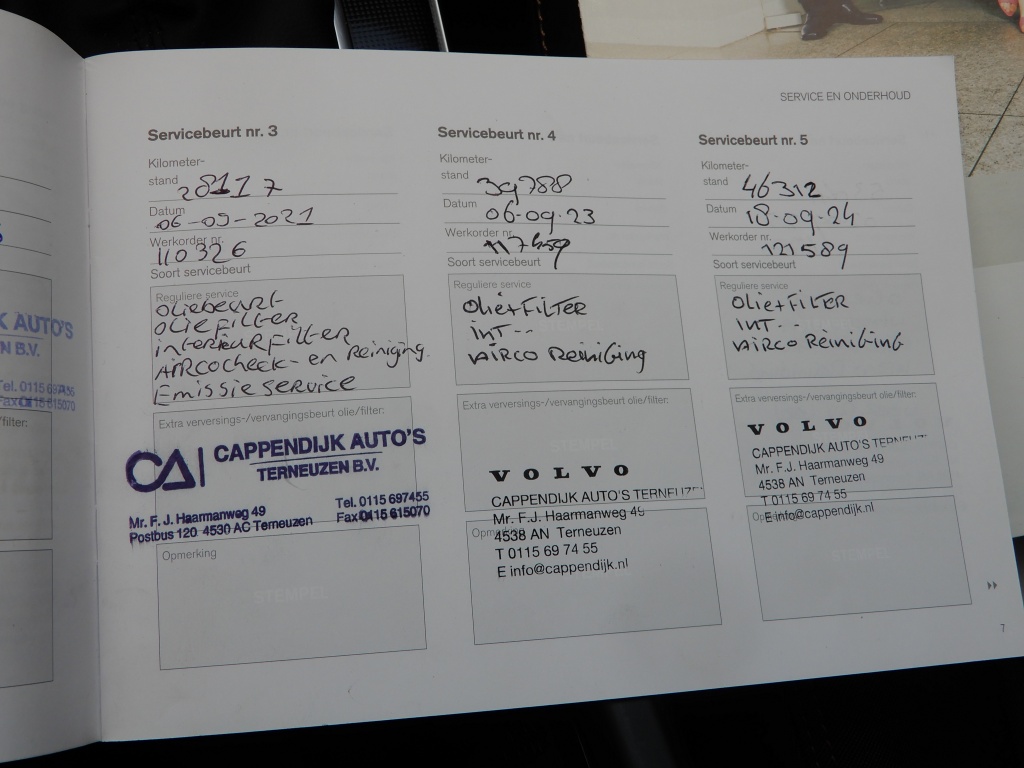 SERVICE EN ONDERHOUD
Servicebeurt nr. 3
Kilometer-
stand 28117
Datum 06-09-2021
Werkorder nr. 110326
Soort servicebeurt
Reguliere service
OLIEBEURT
OLIE FILTER
interieur Filter
AIRCOCHECK - en Reiniging
Emissie service
Extra verversings-/vervangingsbeurt olie/filter:
CA CAPPENDIJK AUTO'S
TERNEUZEN B.V.
Mr. F. J. Haarmanweg 49 Tel. 0115 697455
Postbus 120 4530 AC Terneuzen Fax 0115 615070
Opmerking
STEMPEL
Servicebeurt nr. 4
Kilometer-
stand 39788
Datum 06-09-23
Werkorder nr.
Soort servicebeurt
Reguliere service
OLIE+FILTER
INT--
AIRCO Reiniging
Extra verversings-/vervangingsbeurt olie/filter:
STEMPEL
VOLVO
CAPPENDIJK AUTO'S TERNEUZEN
Mr. F.J. Haarmanweg 49
4538 AN Terneuzen
T 0115 69 74 55
E info@cappendijk.nl
Servicebeurt nr. 5
Kilometer-
stand 46312
Datum 18-09-24
Werkorder nr. 121589
Soort servicebeurt
Reguliere service
OLIE+FILTER
INT--
AIRCO Reiniging
Extra verversings-/vervangingsbeurt olie/filter:
VOLVO
CAPPENDIJK AUTO'S TERNEUZ
Mr. F.J. Haarmanweg 49
4538 AN Terneuzen
T 0115 69 74 55
E info@cappendijk.nl
STEMPEL
7
K AUTO'S
N B.V.
Tel. 0115
Fax 0115 615070
/filter: